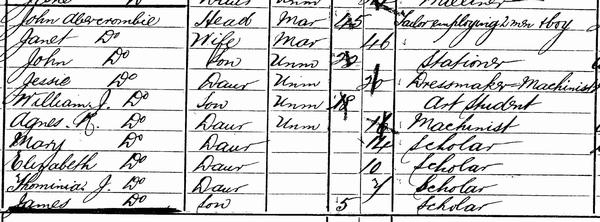 John Abercrombie Head Mar 45 Tailor employing 2 men & boy
Janet Do Wife Mar 46
John Do Son Unm Stationer
Jessie Do Daur Unm 20 Dressmaker = Machinist
William J. Do Son Unm 18 Art Student
Agnes. Do Daur Unm 16 Machinist
Mary Do Daur 14 Scholar
Elizabeth Do Daur 10 Scholar
Thominia J. Do Daur 7 Scholar
James Do Son 5 Scholar